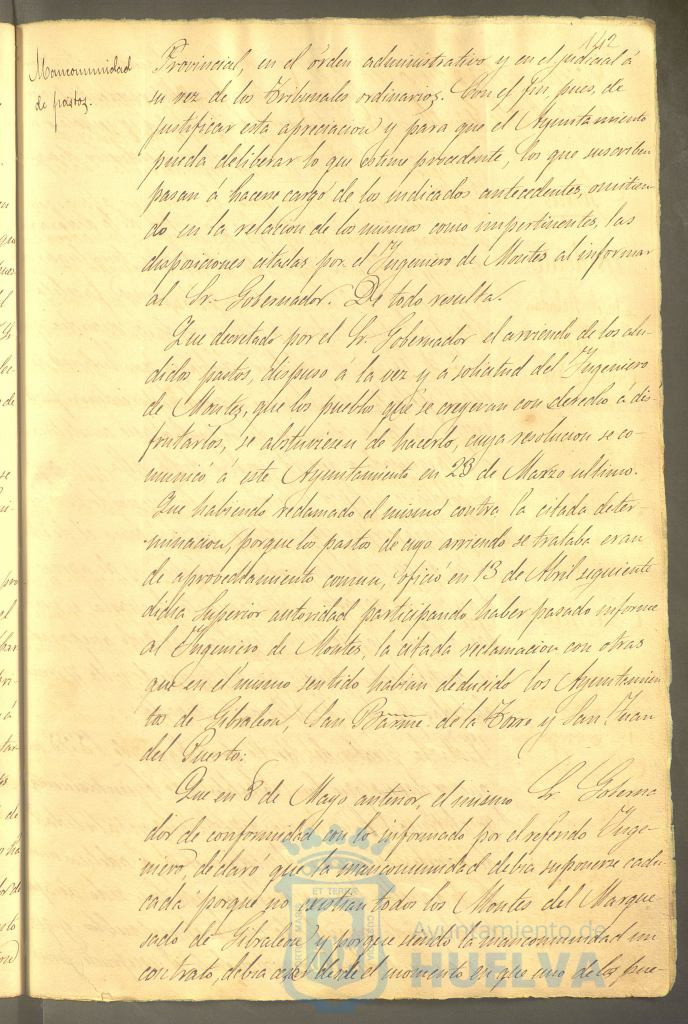 142
Mancomunidad
de pastos.
Provincial, en el órden administrativo y en el judicial á
su vez de los Tribunales ordinarios. Con el fin, pues, de
justificar esta apreciacion y para que el Ayuntamiento
pueda deliberar lo que estime procedente, los que suscriben
pasan á hacerse cargo de los indicados antecedentes, omitien-
do en la relacion de los mismos como impertinentes, las
disposiciones citadas por el Ingeniero de Montes al informar
al Sr. Gobernador. De todo resulta.
Que decretado por el Sr. Gobernador el arriendo de los alu-
didos pastos, dispuso á la vez y á solicitud del Ingeniero
de Montes, que los pueblos que se creyeran con derecho á dis-
frutarlos, se abstuviesen de hacerlo, cuya resolucion se co-
municó á este Ayuntamiento en 23 de Marzo ultimo.
Que habiendo reclamado el mismo contra la citada deter-
minacion, porque los pastos de cuyo arriendo se trataba eran
de aprovechamiento comun, ofició en 13 de Abril siguiente
dicha Superior autoridad participando haber pasado informe
al Ingeniero de Montes, la citada reclamacion con otras
que en el mismo sentido habian deducido los Ayuntamien-
tos de Gibraleon, San Barme. de la Torre y San Juan
del Puerto:
Que en 8 de Mayo anterior, el mismo Sr. Goberna
dor de conformidad con lo informado por el referido Inge-
niero, declaró que la mancomunidad debia suponerse cadu-
cada porque no existian todos los Montes del Marque-
sado de Gibraleon y porque siendo la mancomunidad un
contrato, debia cesar desde el momento en que uno de los pue-
Ayuntamiento de
HUELVA